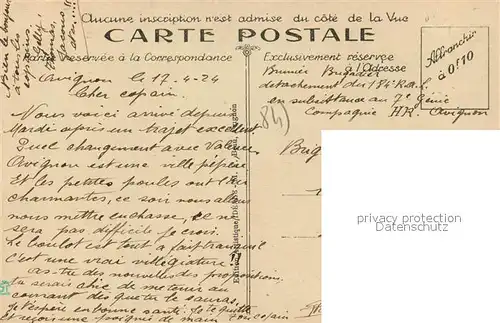 Aucune inscription n'est admise du côté de la Vue
CARTE POSTALE
réservée à la Correspondance
Exclusivement réservée
à l'Adresse
Affranchir
à 0f10
Avignon le 17-4-24
Cher copain
Nous voici arrivé depuis
Mardi après un trajet excellent
Quel changement avec Valence
Avignon est une ville pépère
Et les petites poules ont l'air
charmantes, ce soir nous allons
nous mettre en chasse, ce ne
sera pas difficile je crois.
Le boulot est tout a fait tranquil
c'est une vraie villégiature !!
as-tu des nouvelles des propositions,
tu serais chic de me tenir au
courant dès que tu le sauras,
J'espère en bonne santé. Je te quitte
et reçois une poignée de main Ton copain
Brunier Brigadier
détachement du 184e R.A.L
en subsistance au 7e Génie
Compagnie H.R. Avignon
(84)
Brig
privacy protection
Datenschutz